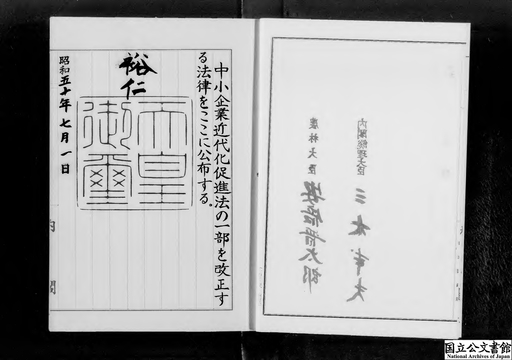 中小企業近代化促進法の一部を改正す
る法律をここに公布する。
裕仁
天皇
御璽
昭和五十年七月一日
内閣
内閣総理大臣 三木武夫
農林大臣 安倍晋太郎
国立公文書館
National Archives of Japan